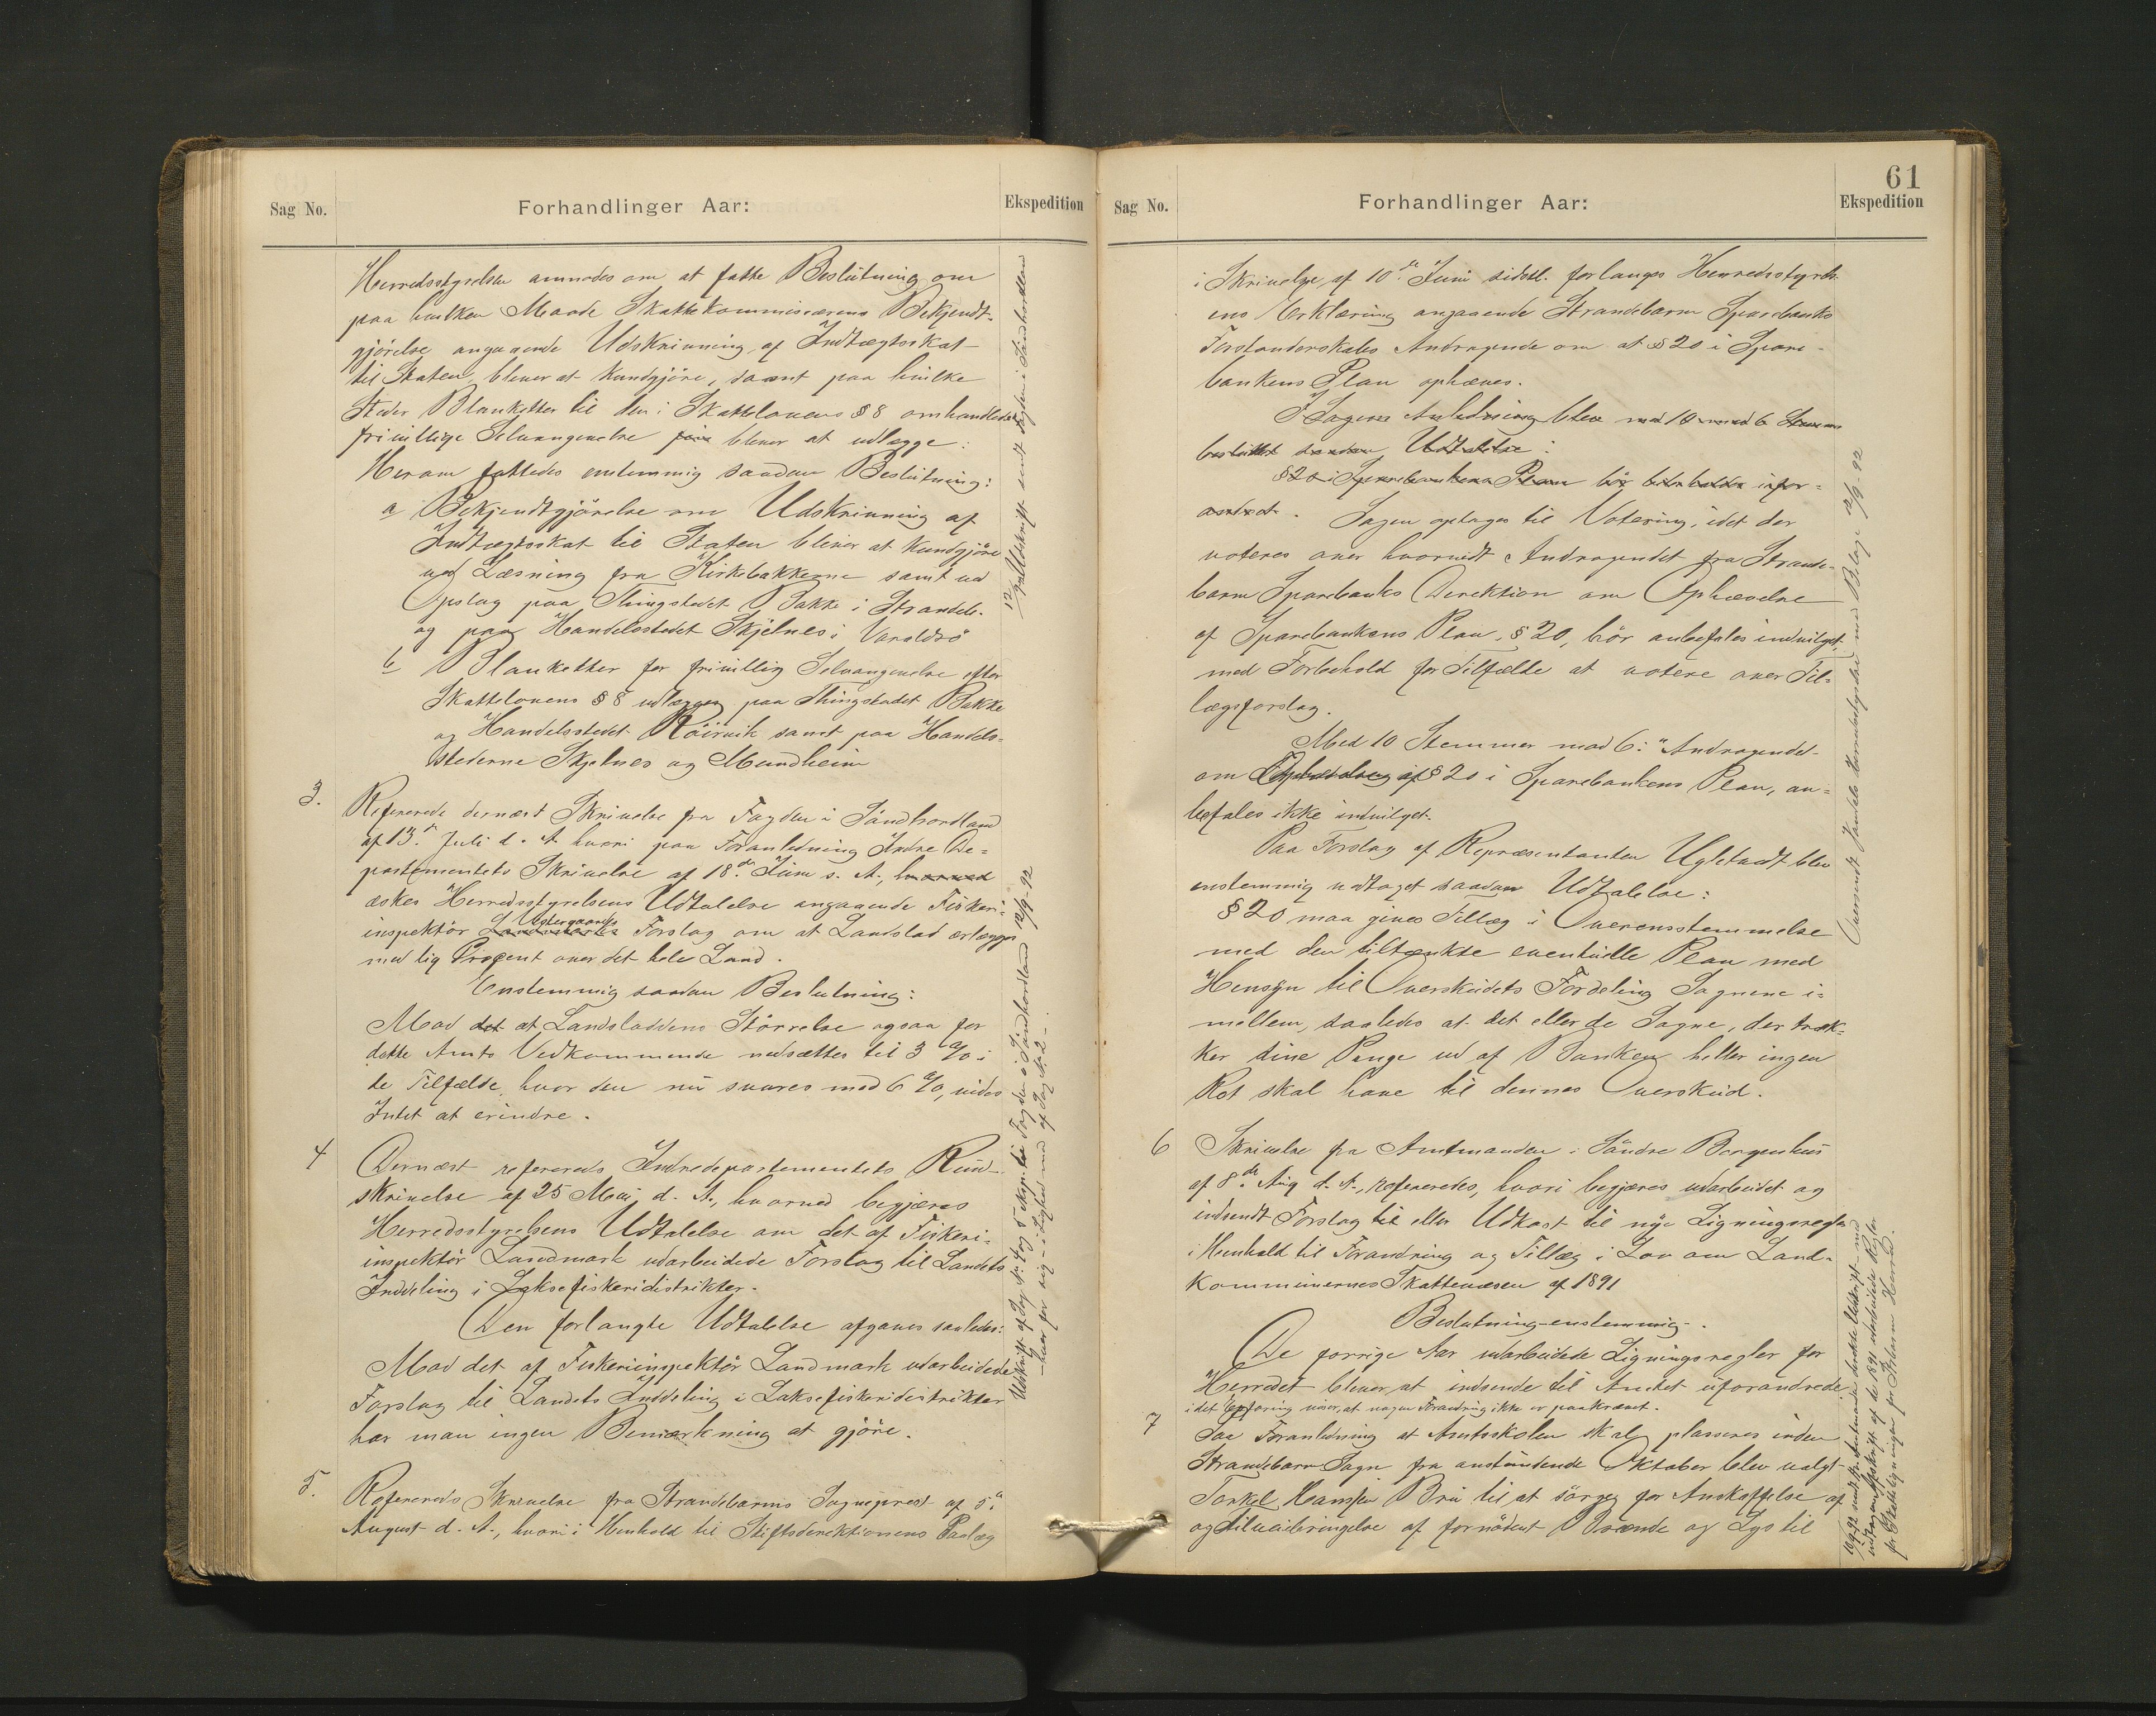 Sag No.
Forhandlinger Aar:
Ekspedition
Herredsstyrelsen anmodes om at fatte Beslutning om
paa hvilken Maade Skattekommissærens Bekjendt-
gjörelse angaaende Udskrivning af Indtægtsskat
til Staten bliver at kundgjöre, samt paa hvilke
Steder Blanketter til den i Skattelovens § 8 omhandlede
frivillige Selvangivelse bliver at udlægge:
Herom fattedes enstemmig saadan Beslutning:
a Bekjendtgjörelse om Udskrivning af
Indtægtsskat til Staten bliver at kundgjöre
ved Læsning fra Kirkebakkerne samt ved
Opslag paa Thingstedet Bakke i Strandeb.
og paa Handelsstedet Skjelnes i Varaldsö
b Blanketter for frivillig Selvangivelse efter
Skattelovens § 8 udlægges paa Thingstedet Bakke
og Handelsstedet Röirvik samt paa Handels-
stederne Skjelnes og Mundheim
3. Refererede dernæst Skrivelse fra Fogden i Söndhordland
af 13de Juli d. A. hvori paa Foranledning Indre De-
partementets Skrivelse af 18de Juni s. A., hvorved
æskes Herredsstyrelsens Udtalelse angaaende Fiskeri-
inspektör Landmarks Forslag om at Landslod erlægges
med lig Procent over det hele Land.
Enstemmig saadan Beslutning:
Mod det at Landsloddens Störrelse ogsaa for
dette Amts Vedkommende nedsættes til 3 % i
de Tilfælde, hvor den nu svares med 6 %, vides
Intet at erindre.
4 Dernæst refereredes Indredepartementets Rund-
skrivelse af 25 Mai d. A., hvorved begjæres
Herredsstyrelsens Udtalelse om det af Fiskeri-
inspektör Landmark udarbeidede Forslag til Landets
Inddeling i Laksefiskeridistrikter.
Den forlangte Udtalelse afgaves saaledes:
Mod det af Fiskeriinspektör Landmark udarbeidede
Forslag til Landets Inddeling i Laksefiskeridistrikter
har man ingen Bemærkning at gjöre.
5. Refereredes Skrivelse fra Strandebarms Sogneprest af 5te
August d. A., hvori i Henhold til Stiftsdirektionens Paalæg
61
Sag No.
Forhandlinger Aar:
Ekspedition
i Skrivelse af 10de Juni sidstl. forlanges Herredsstyrels-
ens Erklæring angaaende Strandebarm Sparebanks
Forstanderskabs Andragende om at § 20 i Spare-
bankens Plan ophæves.
I Sagens Anledning blev med 10 mod 6 Stemmer
besluttet saadan Udtalelse:
§ 20 i Sparebankens Plan bör bibeholdes ufor-
andret. Sagen optages til Votering, idet der
voteres over hvorvidt Andragendet fra Strande-
barm Sparebanks Direktion om Ophævelse
af Sparebankens Plan, § 20, bör anbefales indvilget,
med Forbehold for Tilfælde at votere over Til-
lægsforslag.
Med 10 Stemmer mod 6: "Andragendet
om Ophævelse af § 20 i Sparebankens Plan, an-
befales ikke indvilget.
Paa Forslag af Repræsentanten Uglstadt blev
enstemmig vedtaget saadan Udtalelse:
§ 20 maa gives Tillæg i Overensstemmelse
med den tiltænkte eventuelle Plan med
Hensyn til Overskudets Fordeling Sognene i-
mellem, saaledes at det eller de Sogne, der træk-
ker sine Penge ud af Banken heller ingen
Ret skal have til dennes Overskud.
6 Skrivelse fra Amtmanden i Söndre Bergenhus
af 8de Aug d. A., refereredes, hvori begjæres udarbeidet og
indsendt Forslag til eller Udkast til nye Ligningsregler
i Henhold til Forandring og Tillæg i Lov om Land-
kommunernes Skattevæsen af 1891
Beslutning enstemmig.
De forrige Aar udarbeidede Ligningsregler for
Herredet bliver at indsende til Amtet uforandrede
idet Erfaring viser, at nogen Forandring ikke er paakrævet.
7 Paa Foranledning at Amtsskolen skal plasseres inden
Strandebarm Sogn fra anstundende Oktober blev valgt
Torkel Hanssen Bru til at sörge for Anskaffelse af
og tilveiebringelse af fornödent Brænde og Lys til